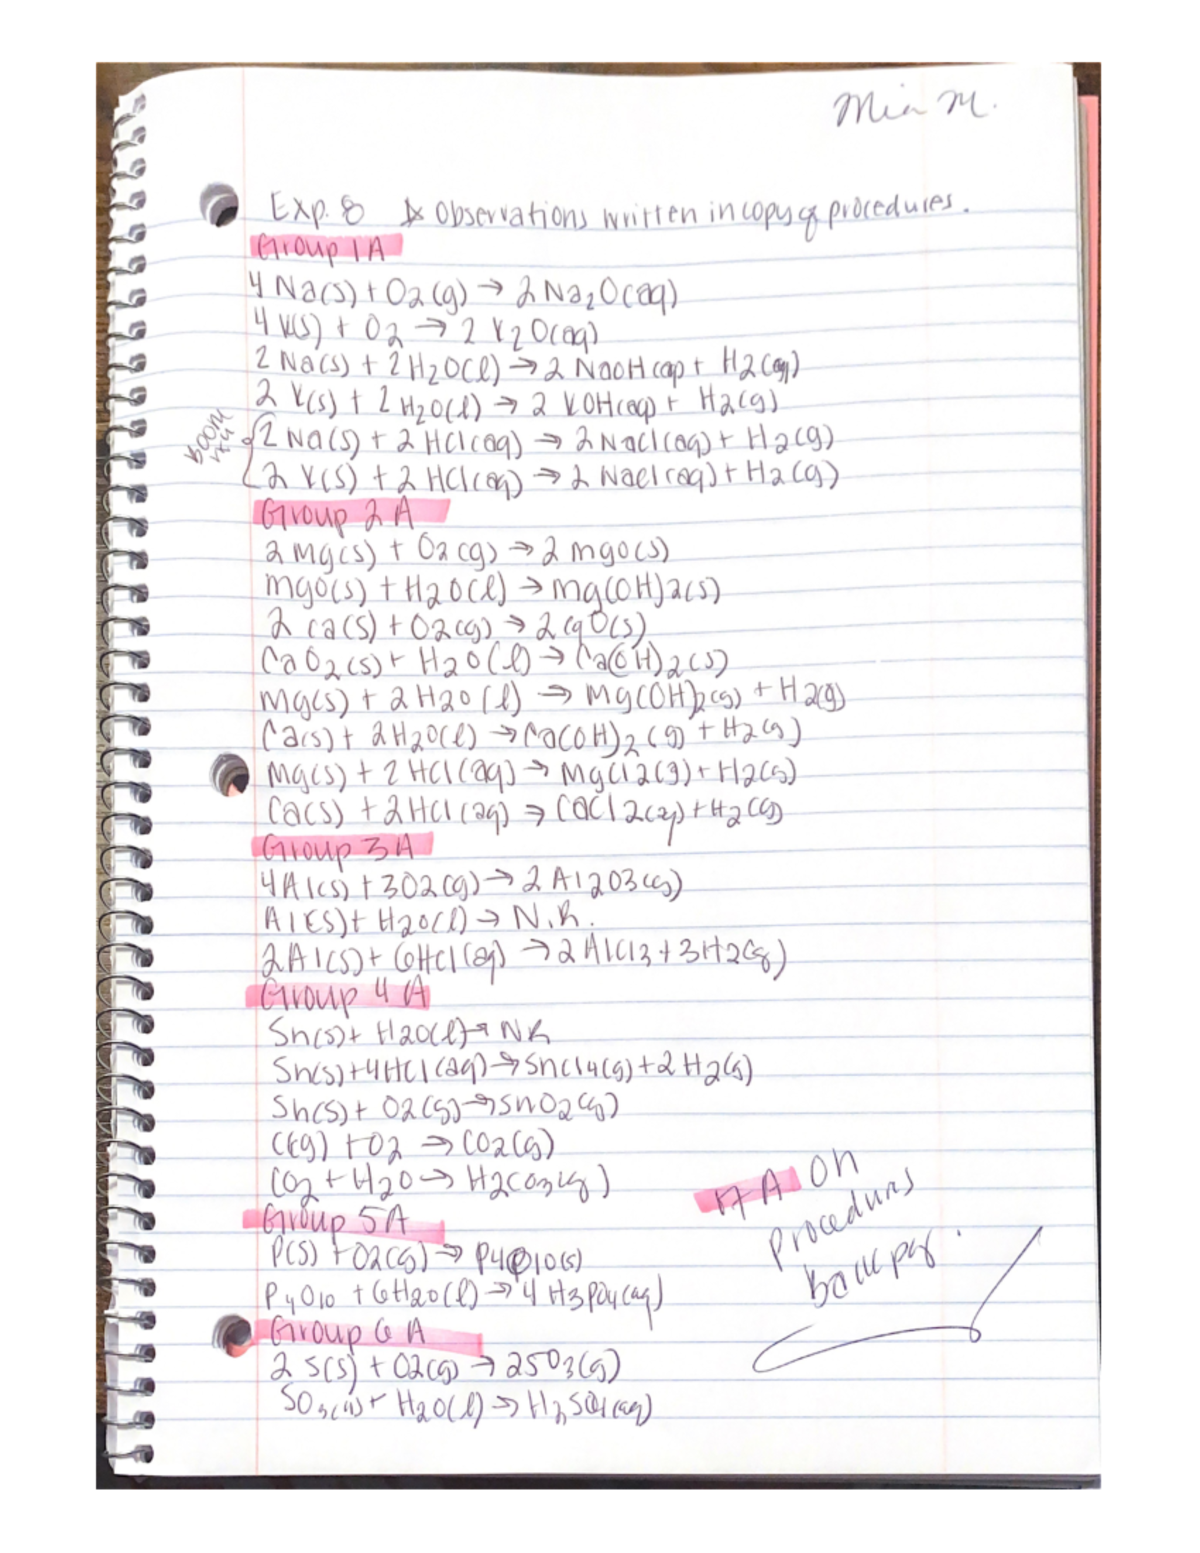 Mia M.
Exp. 8 ☆ Observations written in copy of procedures.
Group 1A
4 Na(s) + O2(g) → 2 Na2O(aq)
4 K(s) + O2 → 2 K2O(aq)
2 Na(s) + 2 H2O(l) → 2 NaOH(aq) + H2(g)
2 K(s) + 2 H2O(l) → 2 KOH(aq) + H2(g)
boom
2 Na(s) + 2 HCl(aq) → 2 NaCl(aq) + H2(g)
2 K(s) + 2 HCl(aq) → 2 NaCl(aq) + H2(g)
Group 2A
2 Mg(s) + O2(g) → 2 MgO(s)
MgO(s) + H2O(l) → Mg(OH)2(s)
2 Ca(s) + O2(g) → 2 CaO(s)
CaO2(s) + H2O(l) → Ca(OH)2(s)
Mg(s) + 2 H2O(l) → Mg(OH)2(g) + H2(g)
Ca(s) + 2H2O(l) → Ca(OH)2(g) + H2(g)
Mg(s) + 2 HCl(aq) → MgCl2(g) + H2(g)
Ca(s) + 2HCl(aq) → CaCl2(aq) + H2(g)
Group 3A
4Al(s) + 3O2(g) → 2Al2O3(s)
Al(s) + H2O(l) → N.R.
2Al(s) + 6HCl(aq) → 2AlCl3 + 3H2(g)
Group 4A
Sn(s) + H2O(l) → NR
Sn(s) + 4HCl(aq) → SnCl4(g) + 2H2(g)
Sn(s) + O2(g) → SnO2(g)
C(g) + O2 → CO2(g)
CO2 + H2O → H2CO3(g)
17A on
Procedures
back pg.
Group 5A
P(s) + O2(g) → P4O10(s)
P4O10 + 6H2O(l) → 4 H3PO4(aq)
Group 6A
2 S(s) + O2(g) → 2SO3(g)
+ H2O(l) →